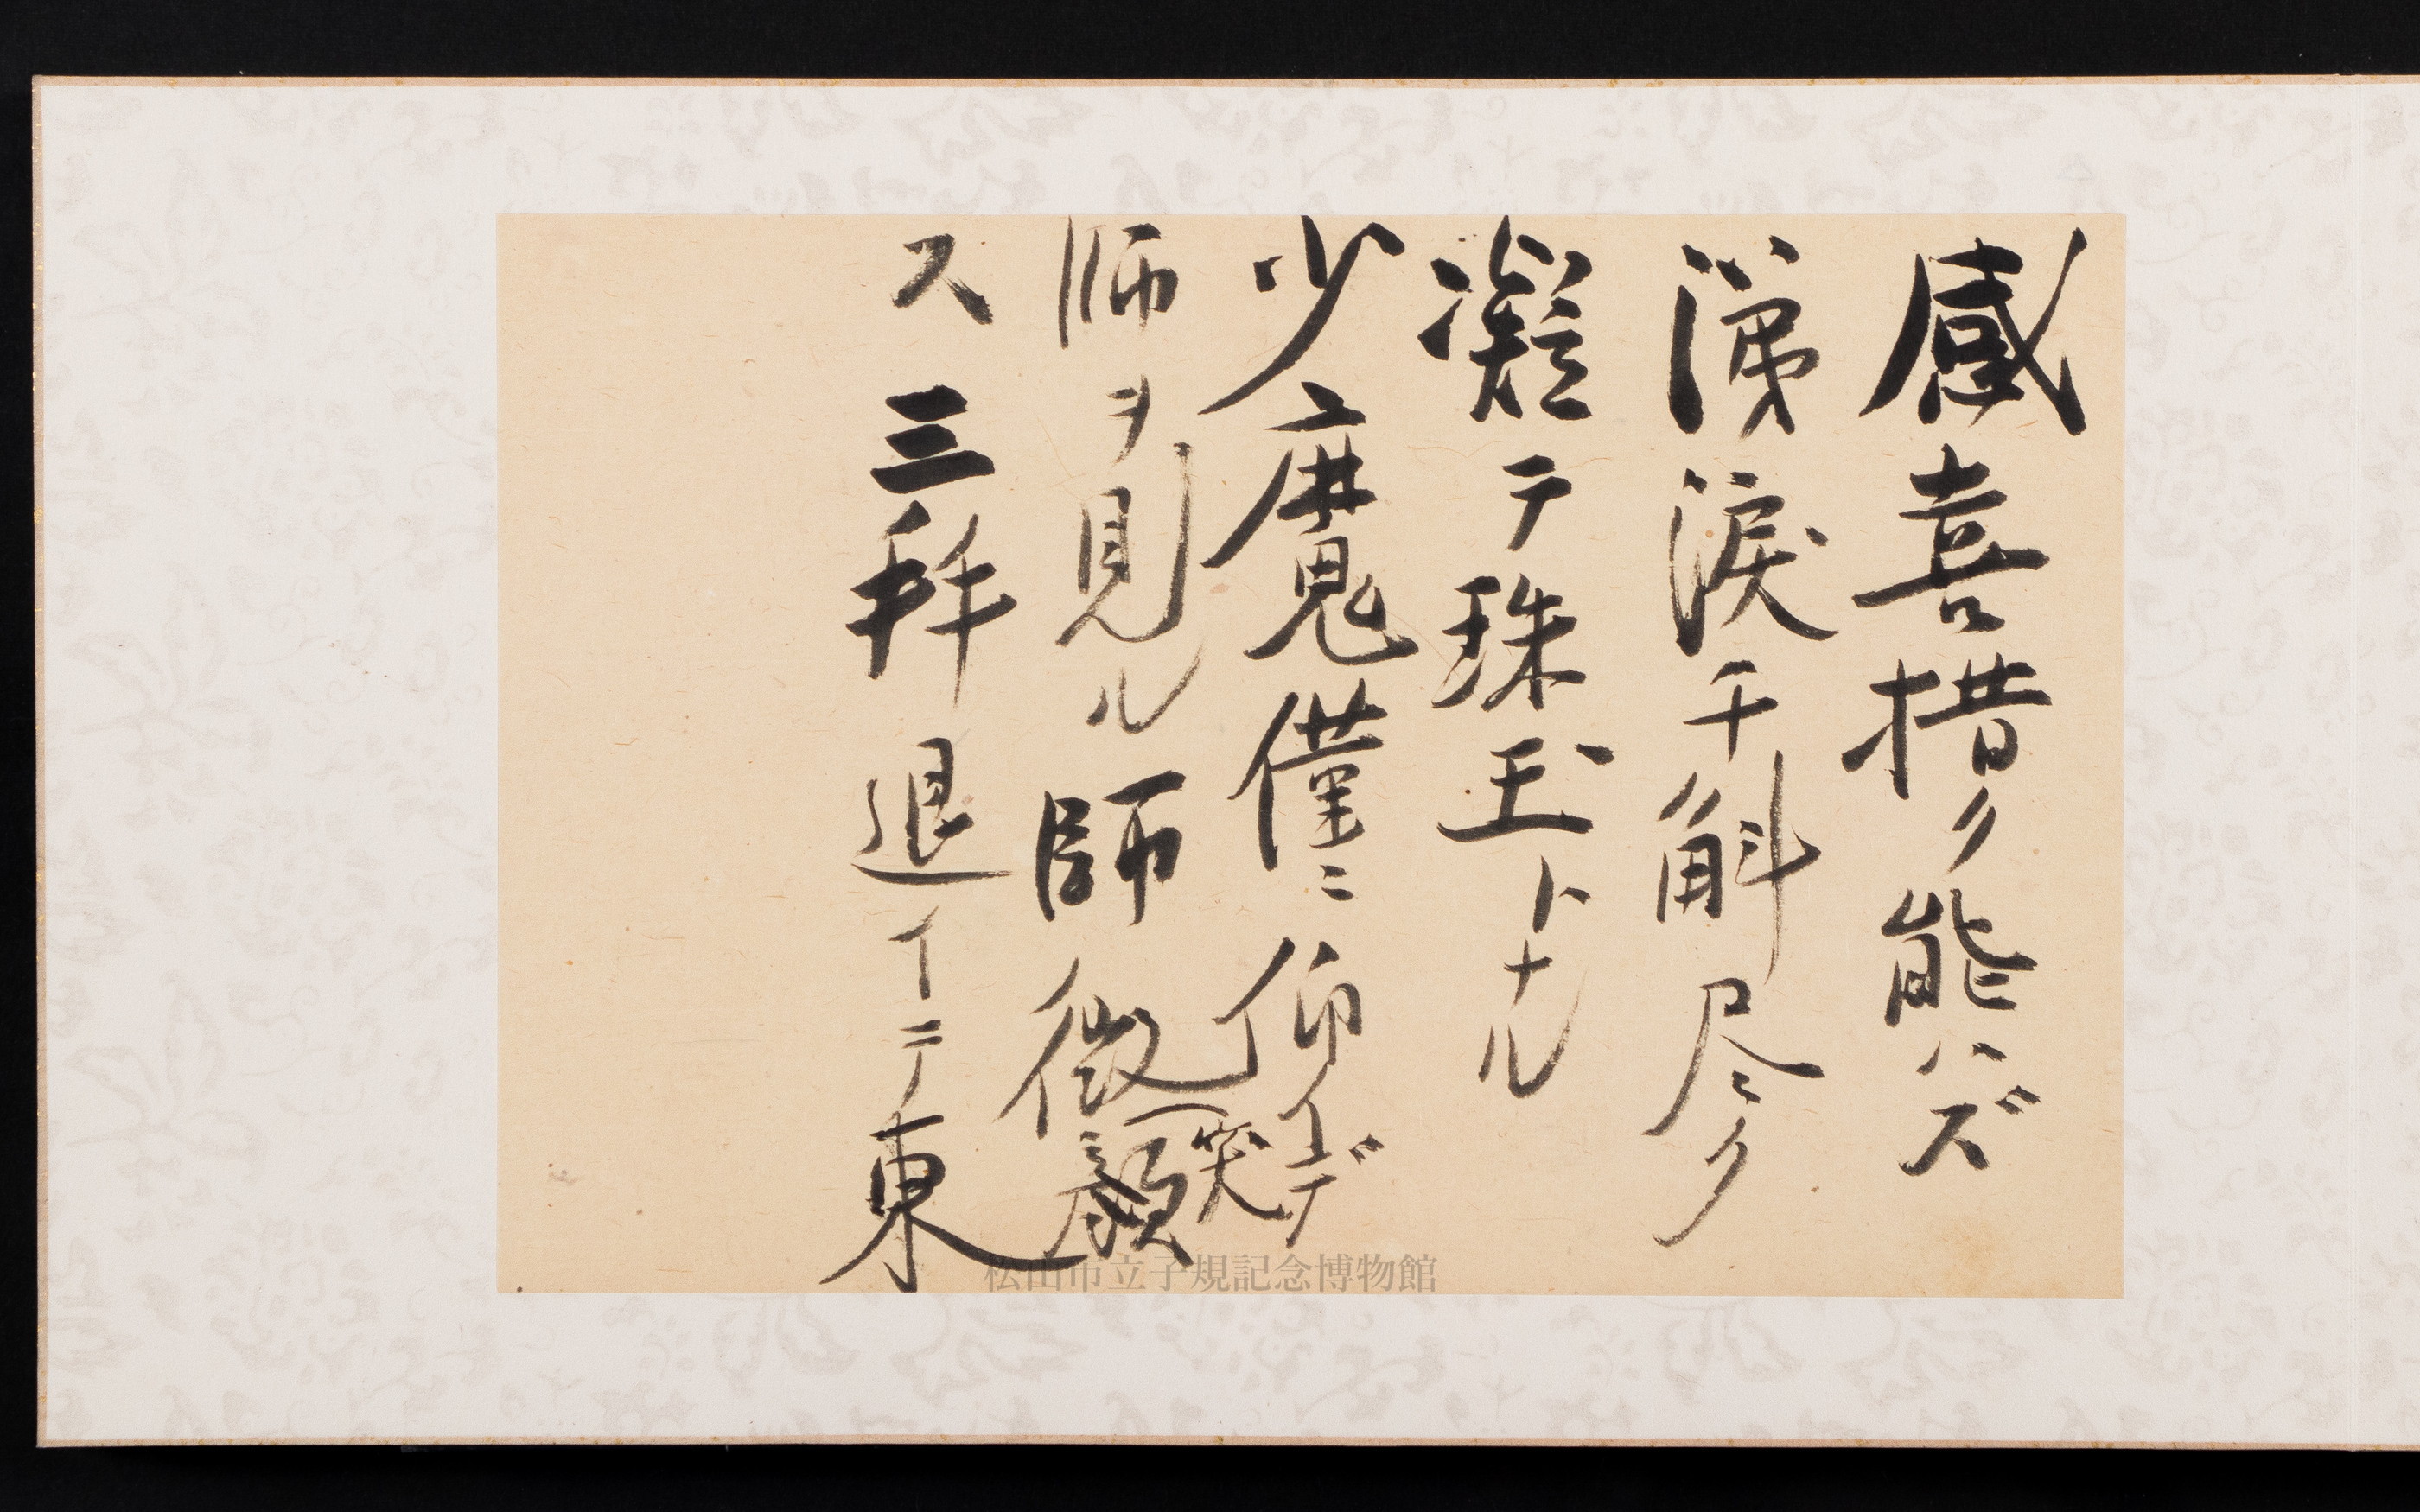 感喜措ク能ハズ
涕涙千斛尽ク
凝テ珠玉トナル
少魔僅ニ仰イデ
師ヲ見ル師微笑
ス三拜退イテ東
松山市立子規記念博物館